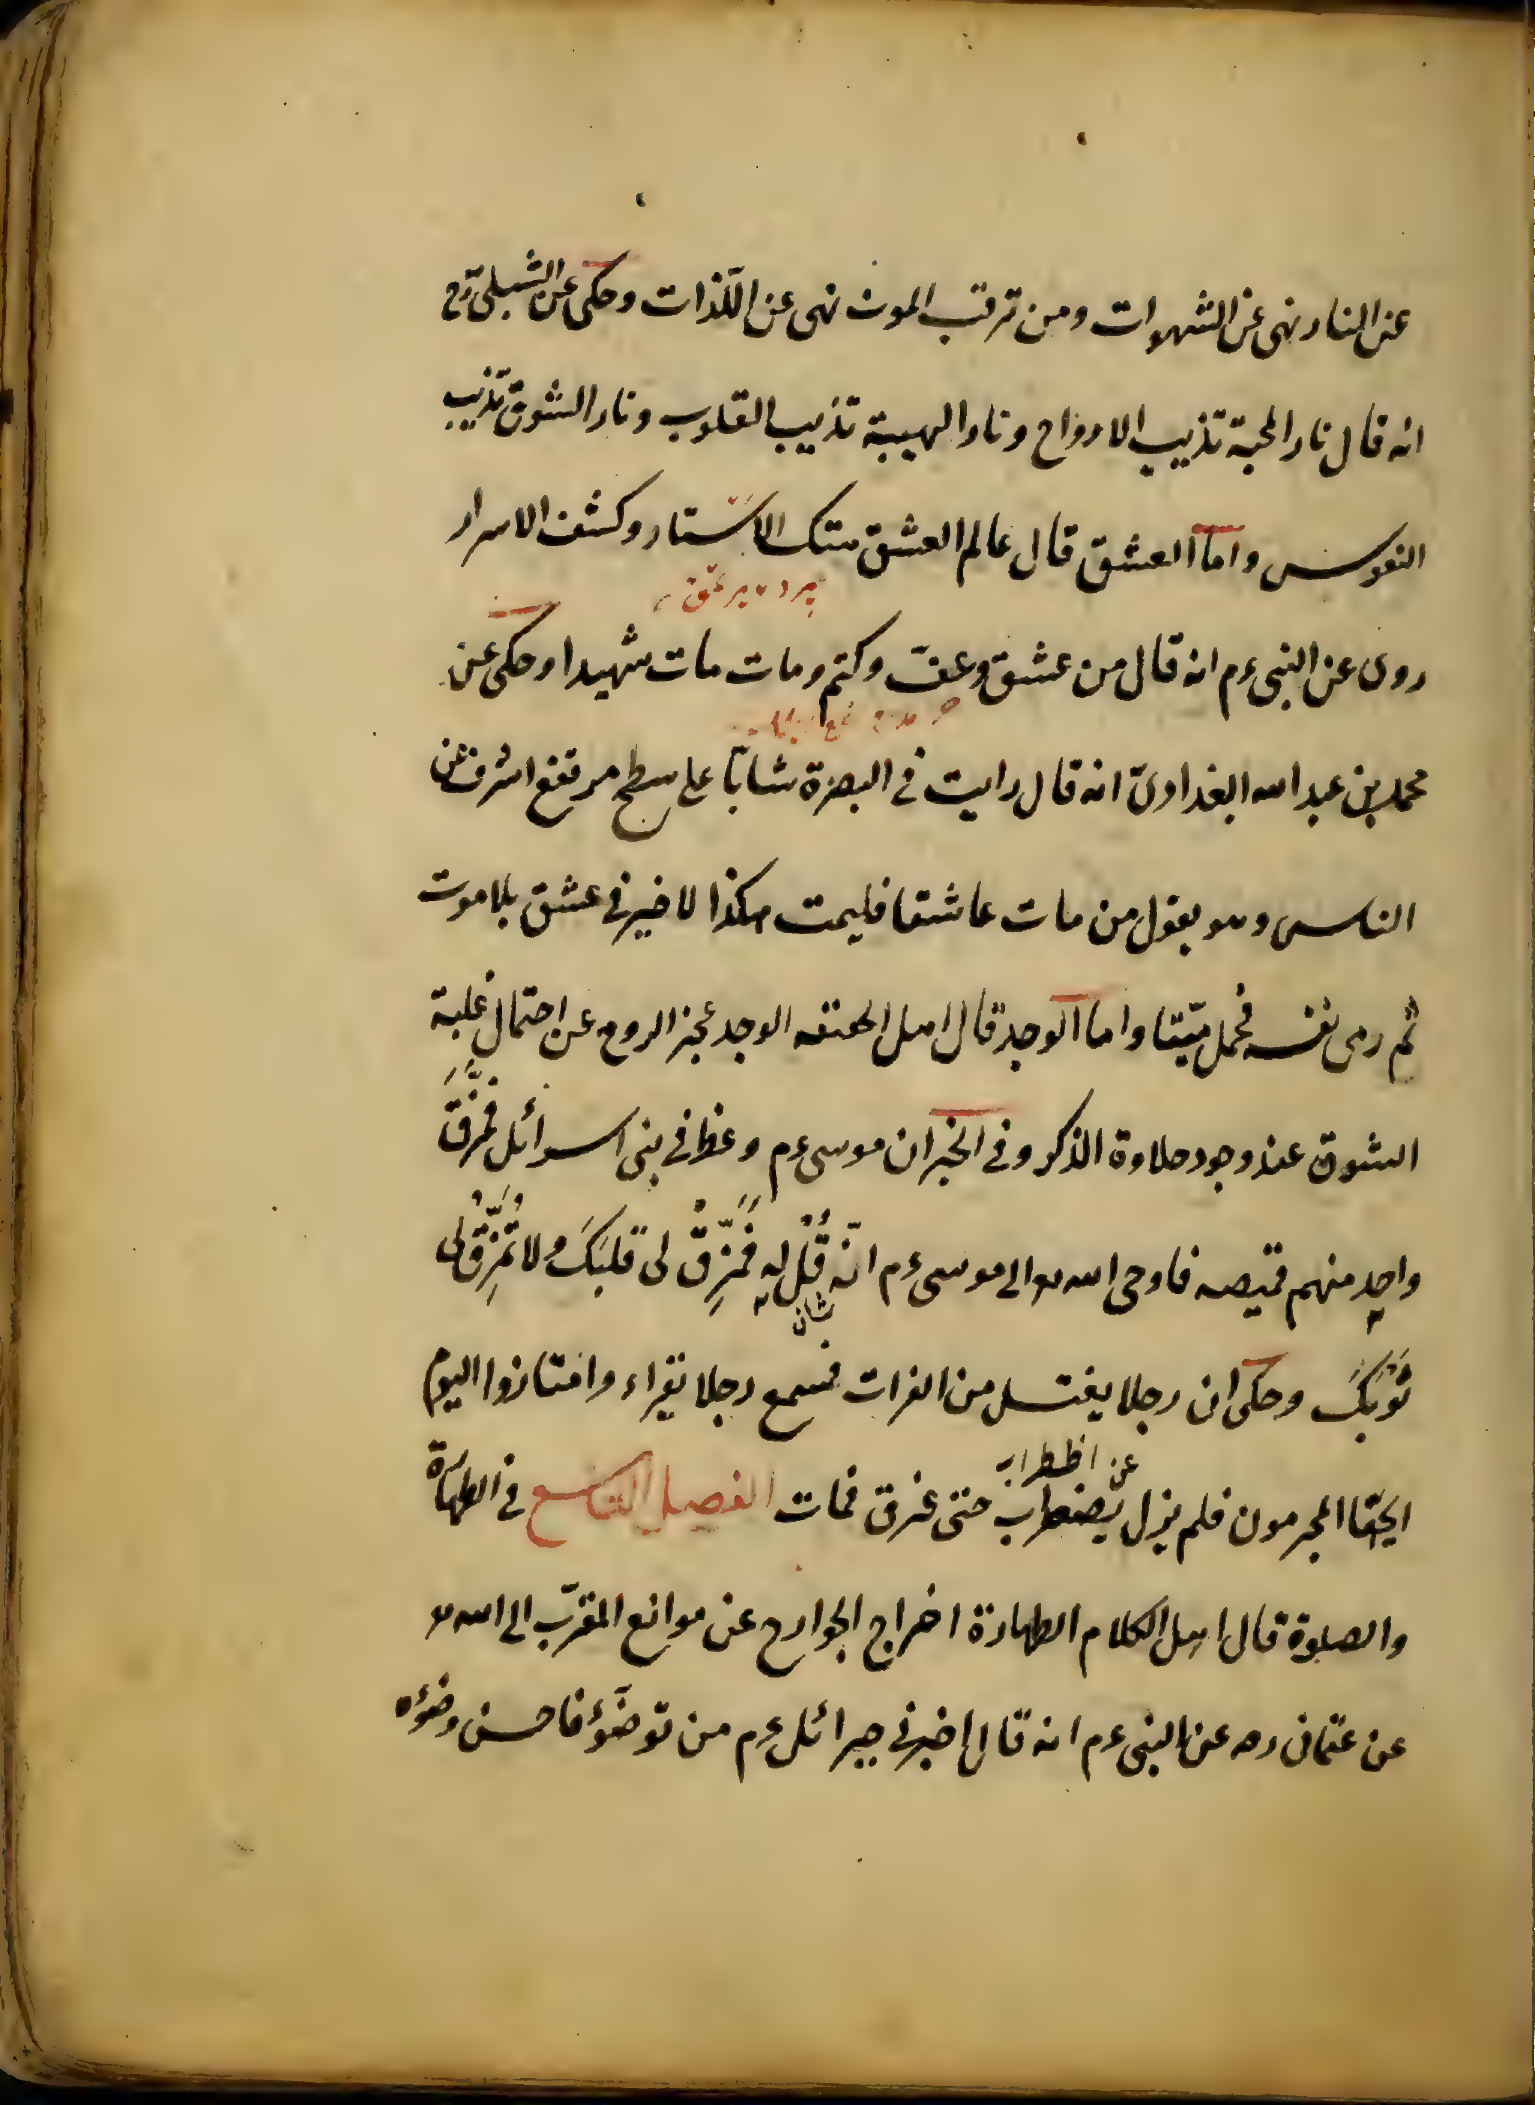 عن النار نهى عن الشهوات ومن ترقب الموت نهى عن اللّذات وحكى عن الشبلى رح
انه قال نار المحبة تذيب الارواح ونار الهيبة تذيب القلوب ونار الشوق تذيب
النفوس واما العشق قال عالم العشق هتك الاستار وكشف الاسرار
روى عن النبى ءم انه قال من عشق وعفّ وكتم ومات مات شهيدا وحكى عن
محمد بن عبد الله البغدادىّ انه قال رايت فى البصرة شابّا على سطح مرتفع اشرف عن
الناس وهو يقول من مات عاشقا فليمت هكذا لا خير فى عشق بلا موت
ثم رمى نفسه فحمل ميّتا واما الوجد قال اهل الحقيقه الوجد عجز الروح عن احتمال غلبة
الشوق عند وجود حلاوة الذكر وفى الخبر ان موسى ءم وعظ فى بنى اسرائل فمزّق
واحد منهم قميصه فاوحى الله تع الى موسى ءم انّه قُلْ له فَمَزِّقْ لى قلبَكَ ولا تُمَزِّقْ لى
شان
ثَوْبَكَ وحكى ان رجلا يغتسل من الفرات فسمع رجلا يقراء وامتازوا اليوم
عن اظطراب
ايّها المجرمون فلم يزل يضطرب حتى غرق فمات الفصل التاسع فى الطهارة
والصلوة قال اهل الكلام الطهارة اخراج الجوارح عن موانع المقرّب الى الله تع
عن عثمان رضه عن النبى ءم انه قال اخبرنى جبرائل ءم من توضّؤ فاحسن وضؤه